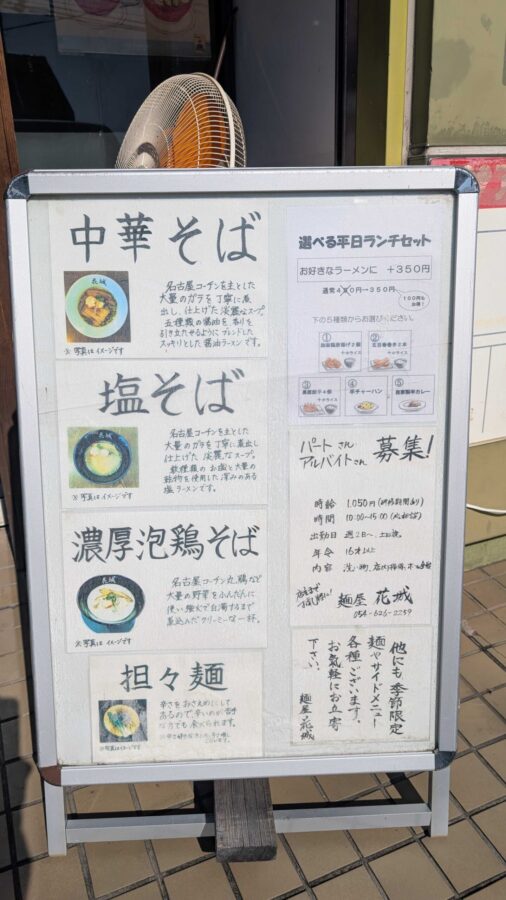 中華そば
長城
名古屋コーチンを主とした
大量のガラを丁寧に煮
出し、仕上げた淡麗なスープ。
五種類の醤油を香りを
引き立たせるようにブレンドした
スッキリとした醤油ラーメンです。
※写真はイメージです
塩そば
長城
名古屋コーチンを主とした
大量のガラを丁寧に煮出し
仕上げた淡麗なスープ。
数種類のお塩と大量の
乾物を使用した深みのある
塩ラーメンです。
※写真はイメージです
濃厚泡鶏そば
長城
名古屋コーチン丸鶏など
大量の野菜をふんだんに
使い強火で白濁するまで
煮込んだクリーミーな一杯。
※写真はイメージです
担々麺
辛さをおさえめにして
あるので、辛いのが苦手
な方でも食べられます。
※写真はイメージです
選べる平日ランチセット
お好きなラーメンに +350円
通常400円→350円
100円も
お得!
下の5種類からお選びください。
①
②
五目春巻き2本
+小ライス
③
+小ライス
④
半チャーハン
⑤
自家製半カレー
パートさん
アルバイトさん
募集!
時給 1,050円(研修期間あり)
時間 10:00~15:00
出勤日 週2日~、土日祝
年令 16才以上
内容 洗い物、店内清掃、ホール
麺屋 花城
054-626-2259
他にも季節限定
麺やサイドメニュー
各種ございます。
お気軽にお立寄
下さい。
麺屋 花城